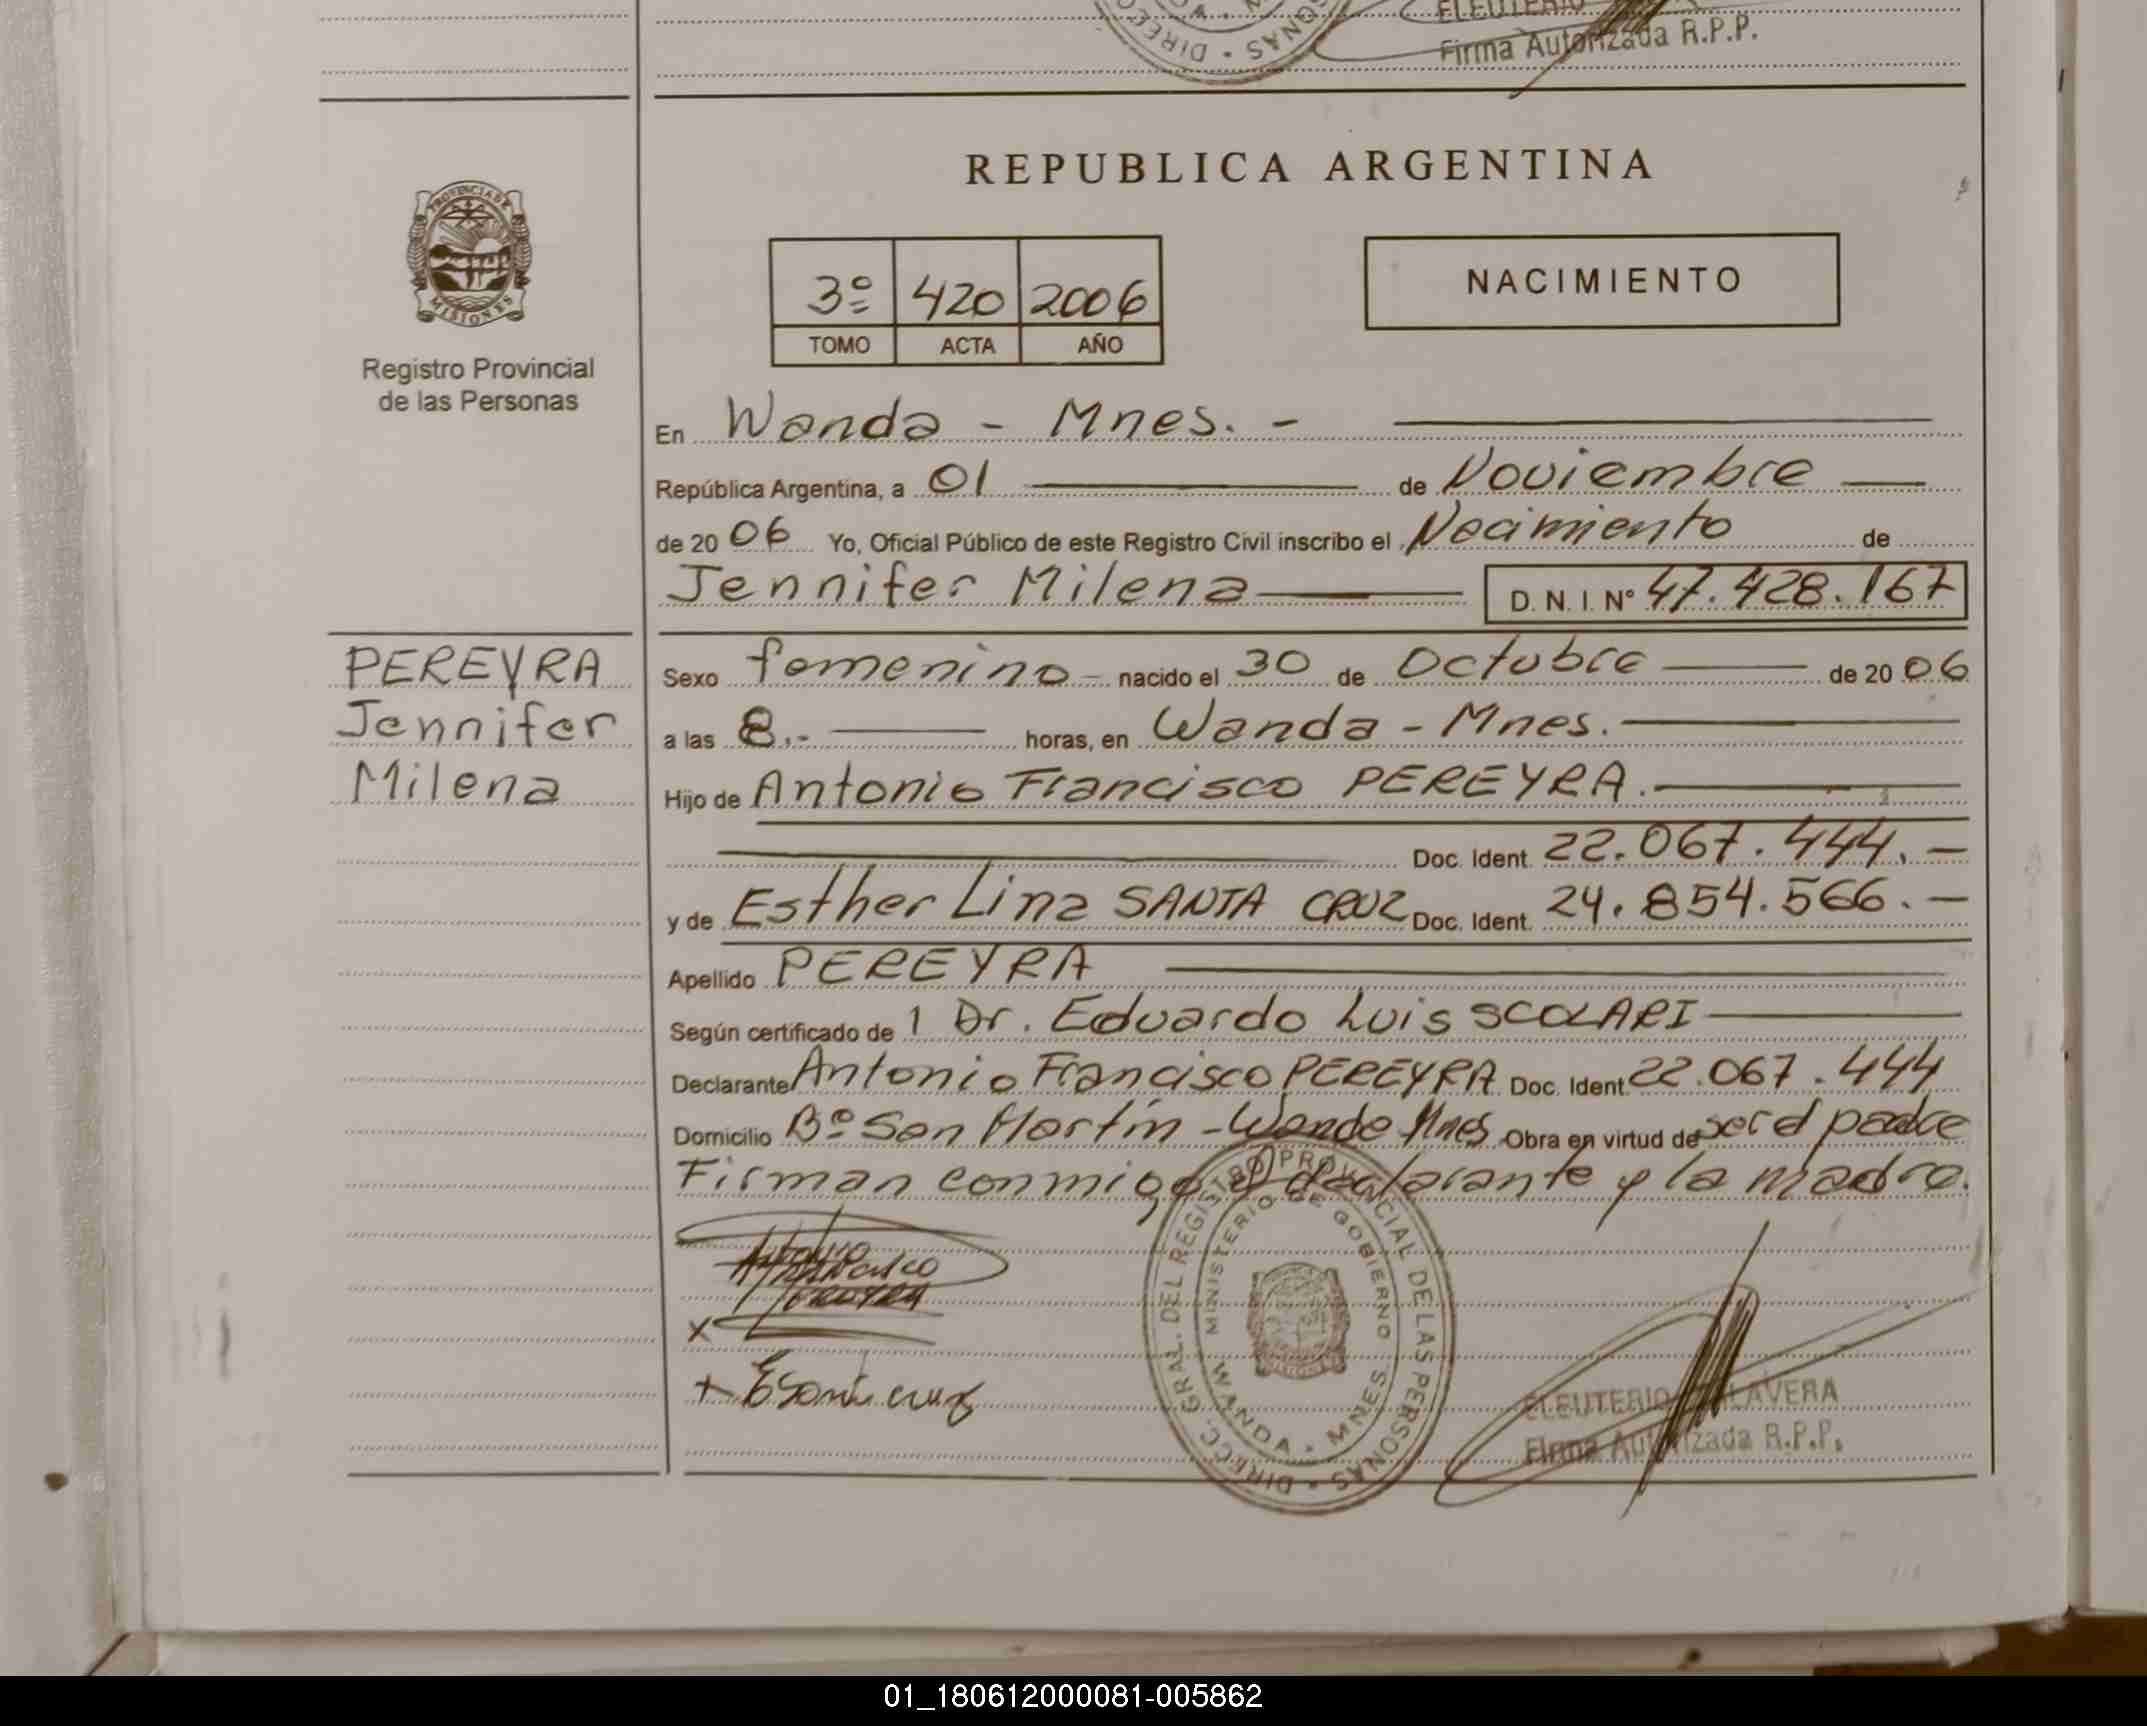 ELEUTERIO
Firma Autorizada R.P.P.
REPUBLICA ARGENTINA
PROVINCIA DE
MISIONES
Registro Provincial
de las Personas
3º 420 2006
TOMO ACTA AÑO
NACIMIENTO
En Wanda - Mnes. -
República Argentina, a 01 de Noviembre
de 2006 Yo, Oficial Público de este Registro Civil inscribo el Nacimiento de
Jennifer Milena D. N. I. Nº 47.428.167
PEREYRA
Jennifer
Milena
Sexo femenino - nacido el 30 de Octubre de 2006
a las 8.- horas, en Wanda - Mnes.
Hijo de Antonio Francisco PEREYRA.
Doc. Ident. 22.067.444. -
y de Esther Lina SANTA CRUZ Doc. Ident. 24.854.566. -
Apellido PEREYRA
Según certificado de 1 Dr. Eduardo Luis SCOLARI
Declarante Antonio Francisco PEREYRA Doc. Ident 22.067.444
Domicilio Bº San Martín - Wanda Mnes Obra en virtud de ser el padre
Firman conmigo el declarante y la madre.
Antonio
Francisco
Pereyra
x
+ E Santi cruz
DIRECC. GRAL. DEL REGISTRO PROVINCIAL DE LAS PERSONAS
MINISTERIO DE GOBIERNO
WANDA - MNES.
ELEUTERIO TALAVERA
Firma Autorizada R.P.P.
01_180612000081-005862